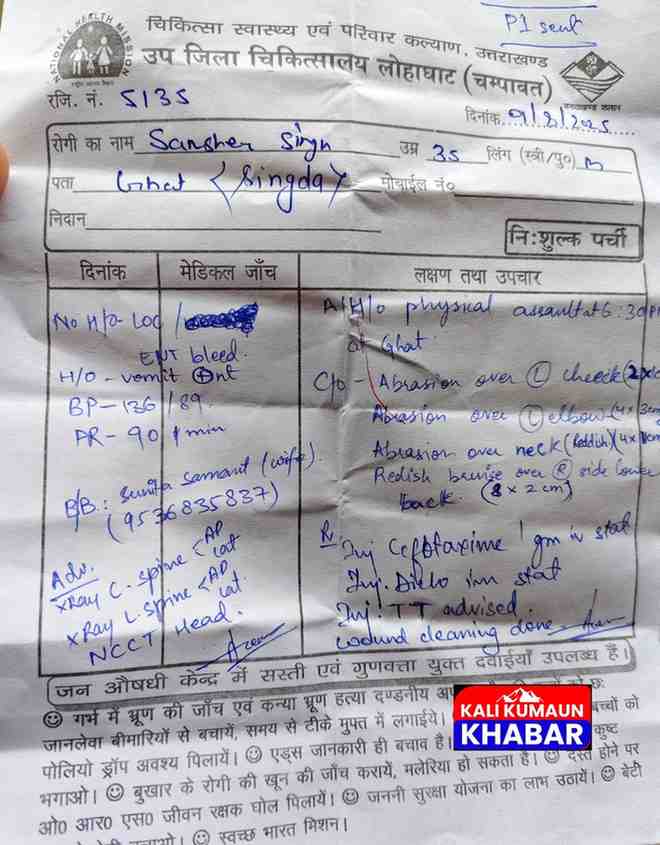 P1 sent
NATIONAL HEALTH MISSION
चिकित्सा स्वास्थ्य एवं परिवार कल्याण, उत्तराखण्ड
उप जिला चिकित्सालय लोहाघाट (चम्पावत)
रजि. नं. 5135
दिनांक 9/8/2025
रोगी का नाम Sansher Singh उम्र 35 लिंग (स्त्री/पु०) m
पता Ghat (Singda) मोबाईल नं०
निदान
नि:शुल्क पर्ची
दिनांक मेडिकल जाँच लक्षण तथा उपचार
No H/O- LOC /
ENT bleed.
H/O - vomit ⊕nt
BP - 136/89
PR - 90 /min
B/B.: Sunita Samant (wife).
(9536835837)
Adv.
xRay C-spine < AP lat
xRay L-spine < AP lat
NCCT Head.
A/H/o physical assault at 6:30 P
at Ghat.
C/O - Abrasion over Ⓛ cheek (2x
Abrasion over Ⓛ elbow (4x 3cm
Abrasion over neck (Reddish) (4x 1cm
Redish bruise over Ⓡ side lower
back. (8 x 2 cm)
Rx
Inj Cefotaxime 1 gm iv stat
Inj. Diclo im stat
Inj. TT advised.
wound cleaning done
जन औषधी केन्द्र में सस्ती एवं गुणवत्ता युक्त दवाईयाँ उपलब्ध है।
गर्भ में भ्रूण की जाँच एवं कन्या भ्रूण हत्या दण्डनीय
जानलेवा बीमारियों से बचायें, समय से टीके मुफ्त में लगाईये। बच्चों को
पोलियो ड्रॉप अवश्य पिलायें। एड्स जानकारी ही बचाव है। कुष्ट
भगाओ। बुखार के रोगी की खून की जाँच करायें, मलेरिया हो सकता है। दस्त होने पर
ओ0 आर0 एस0 जीवन रक्षक घोल पिलायें। जननी सुरक्षा योजना का लाभ उठायें। बेटी
स्वच्छ भारत मिशन।
KALI KUMAUN
KHABAR